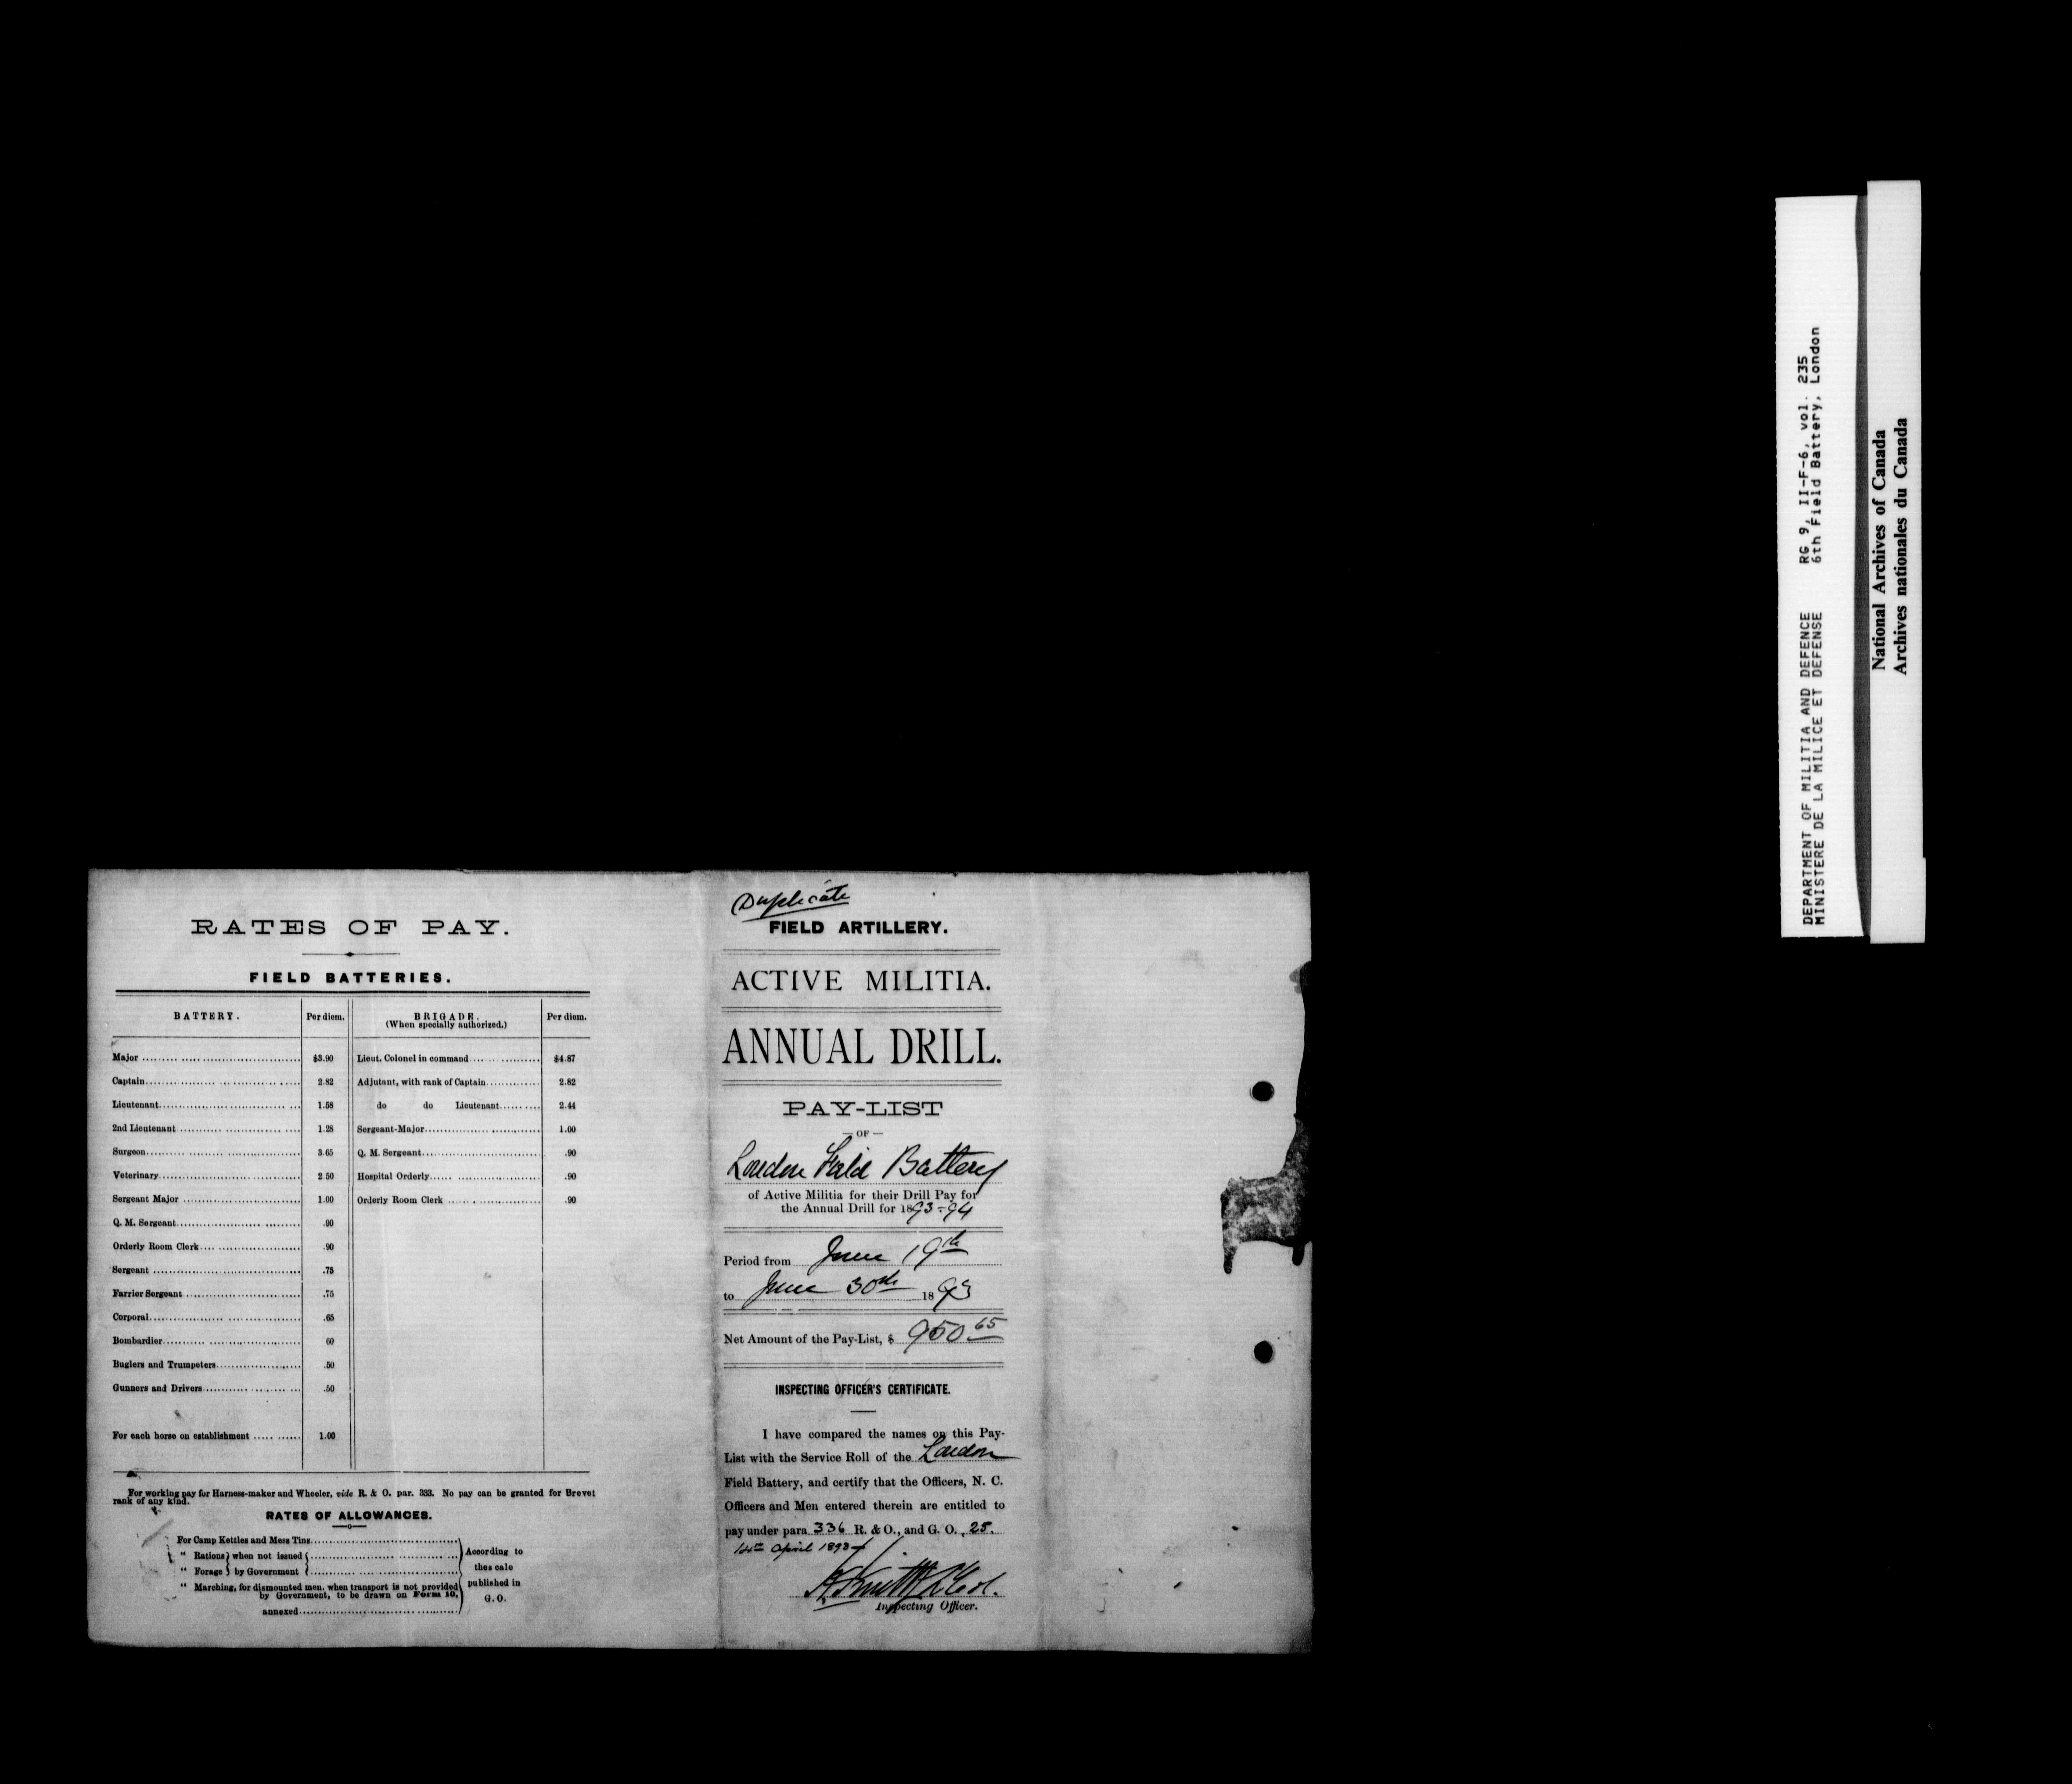 RATES OF PAY.
FIELD BATTERIES.
BATTERY. Per diem. BRIGADE. Per diem.
(When specially authorized.)
Major $3.90 Lieut. Colonel in command $4.87
Captain 2.82 Adjutant, with rank of Captain 2.82
Lieutenant 1.58 do do Lieutenant 2.44
2nd Lieutenant 1.28 Sergeant-Major 1.00
Surgeon 3.65 Q. M. Sergeant .90
Veterinary 2.50 Hospital Orderly .90
Sergeant Major 1.00 Orderly Room Clerk .90
Q. M. Sergeant .90
Orderly Room Clerk .90
Sergeant .75
Farrier Sergeant .75
Corporal .65
Bombardier 60
Buglers and Trumpeters .50
Gunners and Drivers .50
For each horse on establishment 1.00
For working pay for Harness-maker and Wheeler, vide R. & O. par. 333. No pay can be granted for Brevet
rank of any kind.
RATES OF ALLOWANCES.
For Camp Kettles and Mess Tins
" Rations } when not issued {
" Forage } by Government {
" Marching, for dismounted men, when transport is not provided
by Government, to be drawn on Form 10,
annexed
According to
thes cale
published in
G. O.
Duplicate
FIELD ARTILLERY.
ACTIVE MILITIA.
ANNUAL DRILL.
PAY-LIST
— OF —
London Field Battery
of Active Militia for their Drill Pay for
the Annual Drill for 1893-94
Period from June 19th
to June 30th 1893
Net Amount of the Pay-List, $ 950 65
INSPECTING OFFICER'S CERTIFICATE.
I have compared the names on this Pay-
List with the Service Roll of the London
Field Battery, and certify that the Officers, N. C.
Officers and Men entered therein are entitled to
pay under para 336 R. & O., and G. O. 25.
14th April 1893
Smith Lt Col.
Inspecting Officer.
DEPARTMENT OF MILITIA AND DEFENCE RG 9, II-F-6, vol. 235
MINISTERE DE LA MILICE ET DEFENSE 6th Field Battery, London
National Archives of Canada
Archives nationales du Canada